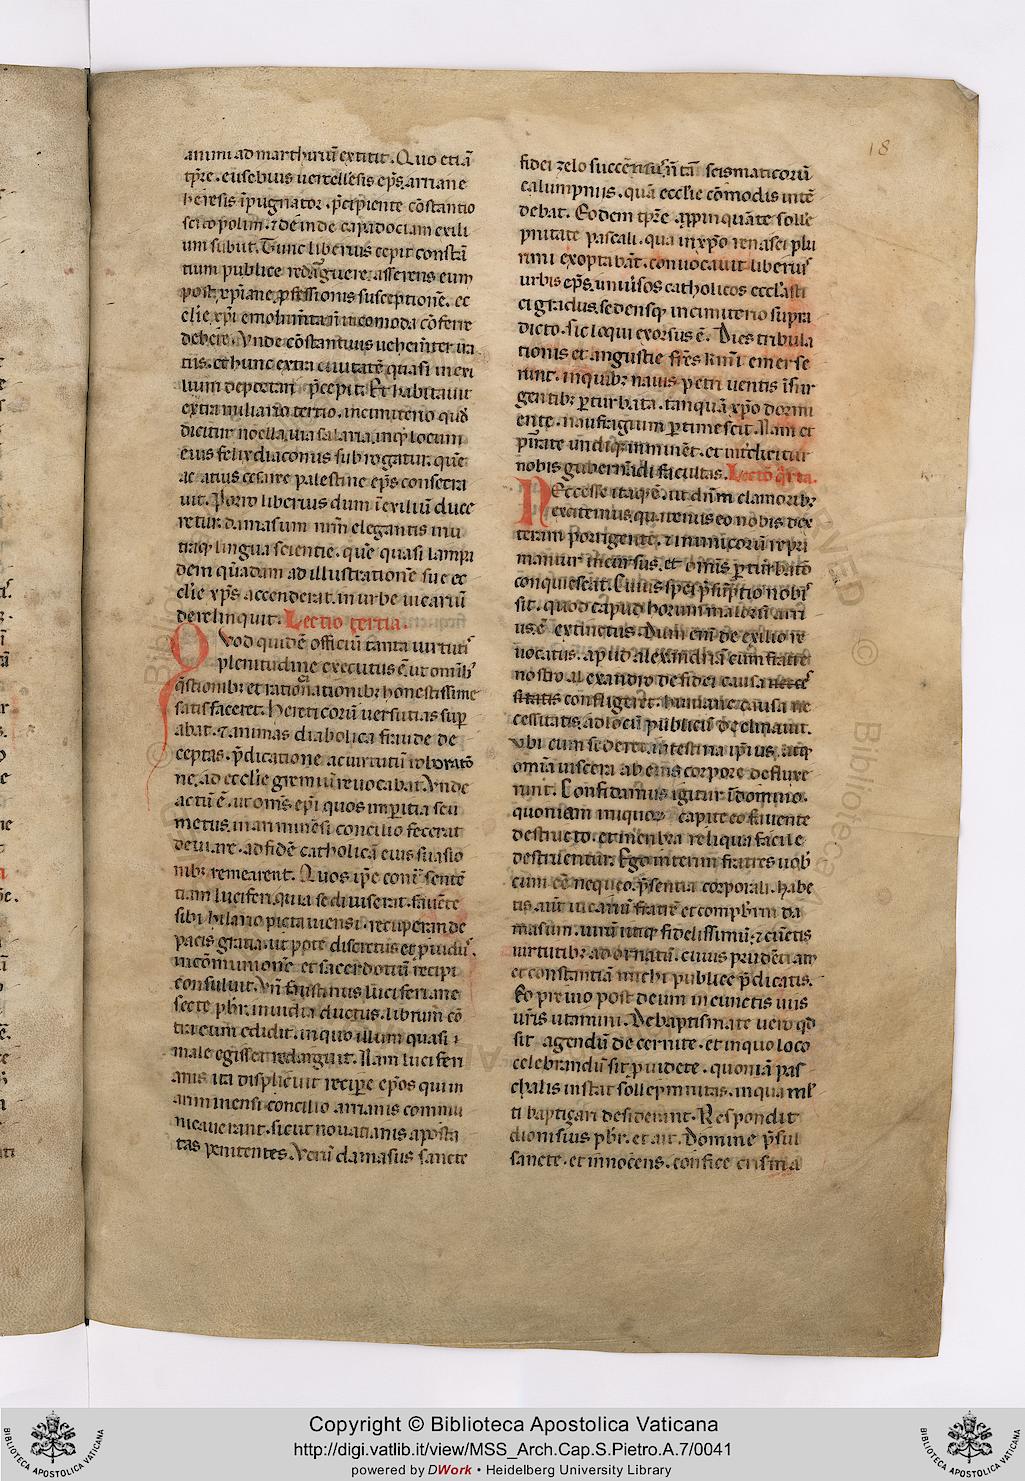 18
animi ad marthiriũ extitit. Quo etiã
tp̃re. eusebius uercellẽsis ep̃s. arriane
heresis ĩpugnator. p̃cipiente cõstantio
scitopolim. ⁊ deinde capadociam exili
um subiit. Tunc liberius cepit constã
tium publice redarguere. asserens eum
post xp̃iane professionis susceptionẽ. ec
clẽie xp̃i emolumẽta ñ incomoda cõferre
debere. Vnde cõstantius uehemẽter ira
tus. et hunc extra ciuitatẽ quasi in exi
lium deportari p̃cepit. Et habitauit
extra miliario tertio. in cimiterio quod
dicitur noella. uia salaria. inq̃ locum
eius felix diaconus subrogatur. quẽ
acatius cesarie palestine ep̃s consecra
uit. Porro liberius dum ĩ exiliũ duce
retur. damasum mirri elegantis mu
tasq̃ lingua scientie. quẽ quasi lampa
dem quãdam ad illustrationẽ sue ec
clẽie xp̃s accenderat. in urbe uicariũ
dereliquit. Lectio tertia.
Quod quidẽ officiũ tanta uirtutis
plenitudine executus ẽ. ut omĩbꝫ
q̃stionibꝫ et rationationibꝫ honestissime
satisfaceret. Hereticorũ uersutias sup
abat. ⁊ animas diabolica fraude de
ceptas. p̃dicatione ac uirtutũ roboratõ
ne. ad ecclẽie gremiũ reuocabat. Vnde
actũ ẽ. ut om̃s ep̃i quos imperitia seu
metus. in ariminẽsi concilio fecerat
deuiare. ad fidẽ catholicã eius suasio
nibꝫ remearent. Quos ip̃e cont͛ sentẽ
tiam luciferi. qua se diuiserat. fauẽte
sibi hilario pictauiensi. recuperande
pacis gratia. ut pote discretus et prouidus.
in cõmunionẽ et sacerdotiũ recipi
consuluit. Vñ faustinus luciferiane
secte pbr̃. inuidia ductus. librum cõ
tra eum edidit. in quo illum quasi
male egisset redarguit. Nam luciferi
anis ita displicuit recipe ep̃os qui in
ariminensi concilio arrianis commu
nicauerant. sicut nouatianis aposta
tas penitentes. Verũ damasus sancte
fidei zelo succẽsus. ñ tã scismaticorũ
calumpniis. quã ecclẽie cõmodis intẽ
debat. Eodem tp̃re appinquãte solle
pnitate pascali. qua in xp̃o renasci plu
rimi exoptabãt. conuocauit liberius
urbis ep̃s uniuersos catholicos ecclẽasti
ci gradus. sedensq̃ in cimiterio supra
dicto. sic loqui exorsus ẽ. Dies tribula
tionis et angustie fr̃es kmĩ emerse
runt. in quibꝫ nauis petri uentis ĩsur
gentibꝫ perturbata. tanquã xp̃o dormi
ente. naufragium pertimescit. Nam et
pirate undiq̃ imminẽt. et intercluditur
nobis gubernãdi facultas. Lectõ q̃rta.
Necesse itaq̃ ẽ. ut dñm clamoribꝫ
excitemus. quatenus eo nobis dex
teram porrigente. ⁊ inimicorũ repri
mantur incursus. et om̃is perturbatio
conquiescat. Cuius spei p̃sũptio nobis
sit. quod capud horum malorũ arri
us. ẽ extinctus. Dum enĩ de exilio re
uocatus. apud alexandriã cum fratre
nostro alexandro de fidei causa
confligeret. humane causa ne
cessitatis. ad locũ publicũ declinauit.
Vbi cum sederet. intestina ipsius. atq̃
omĩa uiscera ab eius corpore defluxe
runt. Confidamus igitur ĩ domino.
quoniam iniquorum capite eo fauente
destructo. et membra reliqua facile
destruentur. Ego interim fratres uobis
cum eẽ nequeo. p̃sentia corporali. habe
tis aut uicariũ fratrẽ et compbr̃m da
masum. uirũ utiq̃ fidelissimũ. ⁊ cũctis
uirtutibꝫ adornatũ. cuius prudẽtiam
et constantiã michi publice p̃dicatis.
Eo preuio post deum in cunctis uiis
ur̃is utamini. De baptismate uero qd
sit agendũ decernite. et in quo loco
celebrandũ sit prouidete. quoniã pas
chalis instat sollempnitas. in qua mul
ti baptizari desiderant. Respondit
dionisius pbr̃. et ait. Domine p̃sul
sancte. et innocens. confice crisma
Copyright © Biblioteca Apostolica Vaticana
http://digi.vatlib.it/view/MSS_Arch.Cap.S.Pietro.A.7/0041
powered by DWork • Heidelberg University Library
BIBLIOTECA APOSTOLICA VATICANA
BIBLIOTECA APOSTOLICA VATICANA